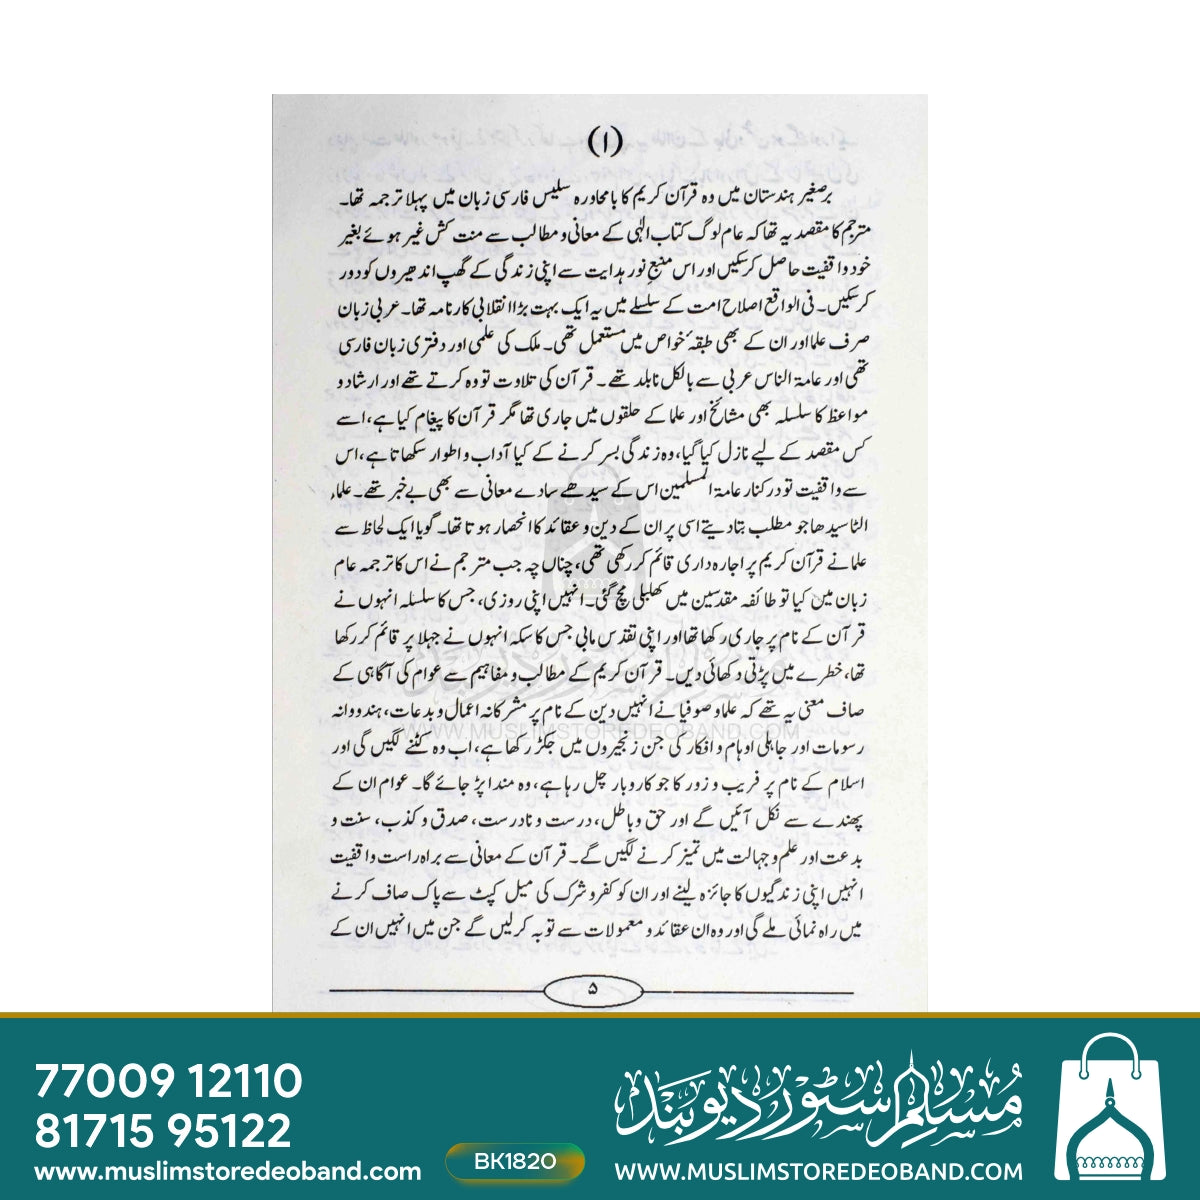 (۱)
برصغیر ہندستان میں وہ قرآن کریم کا بامحاورہ سلیس فارسی زبان میں پہلا ترجمہ تھا۔
مترجم کا مقصد یہ تھا کہ عام لوگ کتاب الٰہی کے معانی و مطالب سے منت کش غیر ہوئے بغیر
خود واقفیت حاصل کر سکیں اور اس منبع نور ہدایت سے اپنی زندگی کے گھپ اندھیروں کو دور
کر سکیں۔ فی الواقع اصلاح امت کے سلسلے میں یہ ایک بہت بڑا انقلابی کارنامہ تھا۔ عربی زبان
صرف علما اور ان کے بھی طبقۂ خواص میں مستعمل تھی۔ ملک کی علمی اور دفتری زبان فارسی
تھی اور عامۃ الناس عربی سے بالکل نابلد تھے۔ قرآن کی تلاوت تو وہ کرتے تھے اور ارشاد و
مواعظ کا سلسلہ بھی مشائخ اور علما کے حلقوں میں جاری تھا مگر قرآن کا پیغام کیا ہے، اسے
کس مقصد کے لیے نازل کیا گیا، وہ زندگی بسر کرنے کے کیا آداب و اطوار سکھاتا ہے، اس
سے واقفیت تو درکنار عامۃ المسلمین اس کے سیدھے سادے معانی سے بھی بے خبر تھے۔ علماء
الٹا سیدھا جو مطلب بتا دیتے اسی پر ان کے دین و عقائد کا انحصار ہوتا تھا۔ گویا ایک لحاظ سے
علما نے قرآن کریم پر اجارہ داری قائم کر رکھی تھی، چناں چہ جب مترجم نے اس کا ترجمہ عام
زبان میں کیا تو طائفہ مقدسین میں کھلبلی مچ گئی۔ انہیں اپنی روزی، جس کا سلسلہ انہوں نے
قرآن کے نام پر جاری رکھا تھا اور اپنی تقدس مابی جس کا سکہ انہوں نے جہلا پر قائم کر رکھا
تھا، خطرے میں پڑتی دکھائی دیں۔ قرآن کریم کے مطالب و مفاہیم سے عوام کی آگاہی کے
صاف معنی یہ تھے کہ علما و صوفیا نے انہیں دین کے نام پر مشرکانہ اعمال و بدعات، ہندووانہ
رسومات اور جاہلی اوہام و افکار کی جن زنجیروں میں جکڑ رکھا ہے، اب وہ کٹنے لگیں گی اور
اسلام کے نام پر فریب و زور کا جو کاروبار چل رہا ہے، وہ مندا پڑ جائے گا۔ عوام ان کے
پھندے سے نکل آئیں گے اور حق و باطل، درست و نادرست، صدق و کذب، سنت و
بدعت اور علم و جہالت میں تمیز کرنے لگیں گے۔ قرآن کے معانی سے براہ راست واقفیت
انہیں اپنی زندگیوں کا جائزہ لینے اور ان کو کفر و شرک کی میل کپٹ سے پاک صاف کرنے
میں راہ نمائی ملے گی اور وہ ان عقائد و معمولات سے توبہ کر لیں گے جن میں انہیں ان کے
۵
WWW.MUSLIMSTOREDEOBAND.COM
77009 12110
81715 95122
www.muslimstoredeoband.com
BK1820
مُسلم سٹور دیوبند
WWW.MUSLIMSTOREDEOBAND.COM